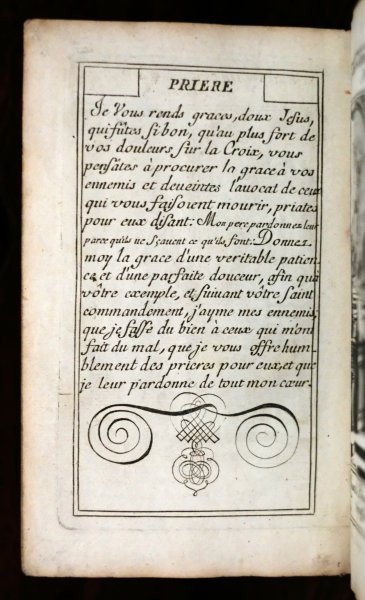 PRIERE
Je Vous rends graces, doux Jesus,
qui fûtes si bon, qu'au plus fort de
vos douleurs sur la Croix, vous
pensâtes à procurer la grace à vos
ennemis et deveintes l'avocat de ceux
qui vous faisoient mourir, priates
pour eux disant: Mon pere pardonnez leur
parce qu'ils ne sçavent ce qu'ils font: Donnez
moy la grace d'une veritable patien-
ce, et d'une parfaite douceur, afin qu'a
vôtre exemple, et suivant vôtre saint
commandement, j'ayme mes ennemis,
que je fasse du bien à ceux qui m'ont
fait du mal, que je vous offre hum-
blement des prieres pour eux, et que
je leur pardonne de tout mon cœur.